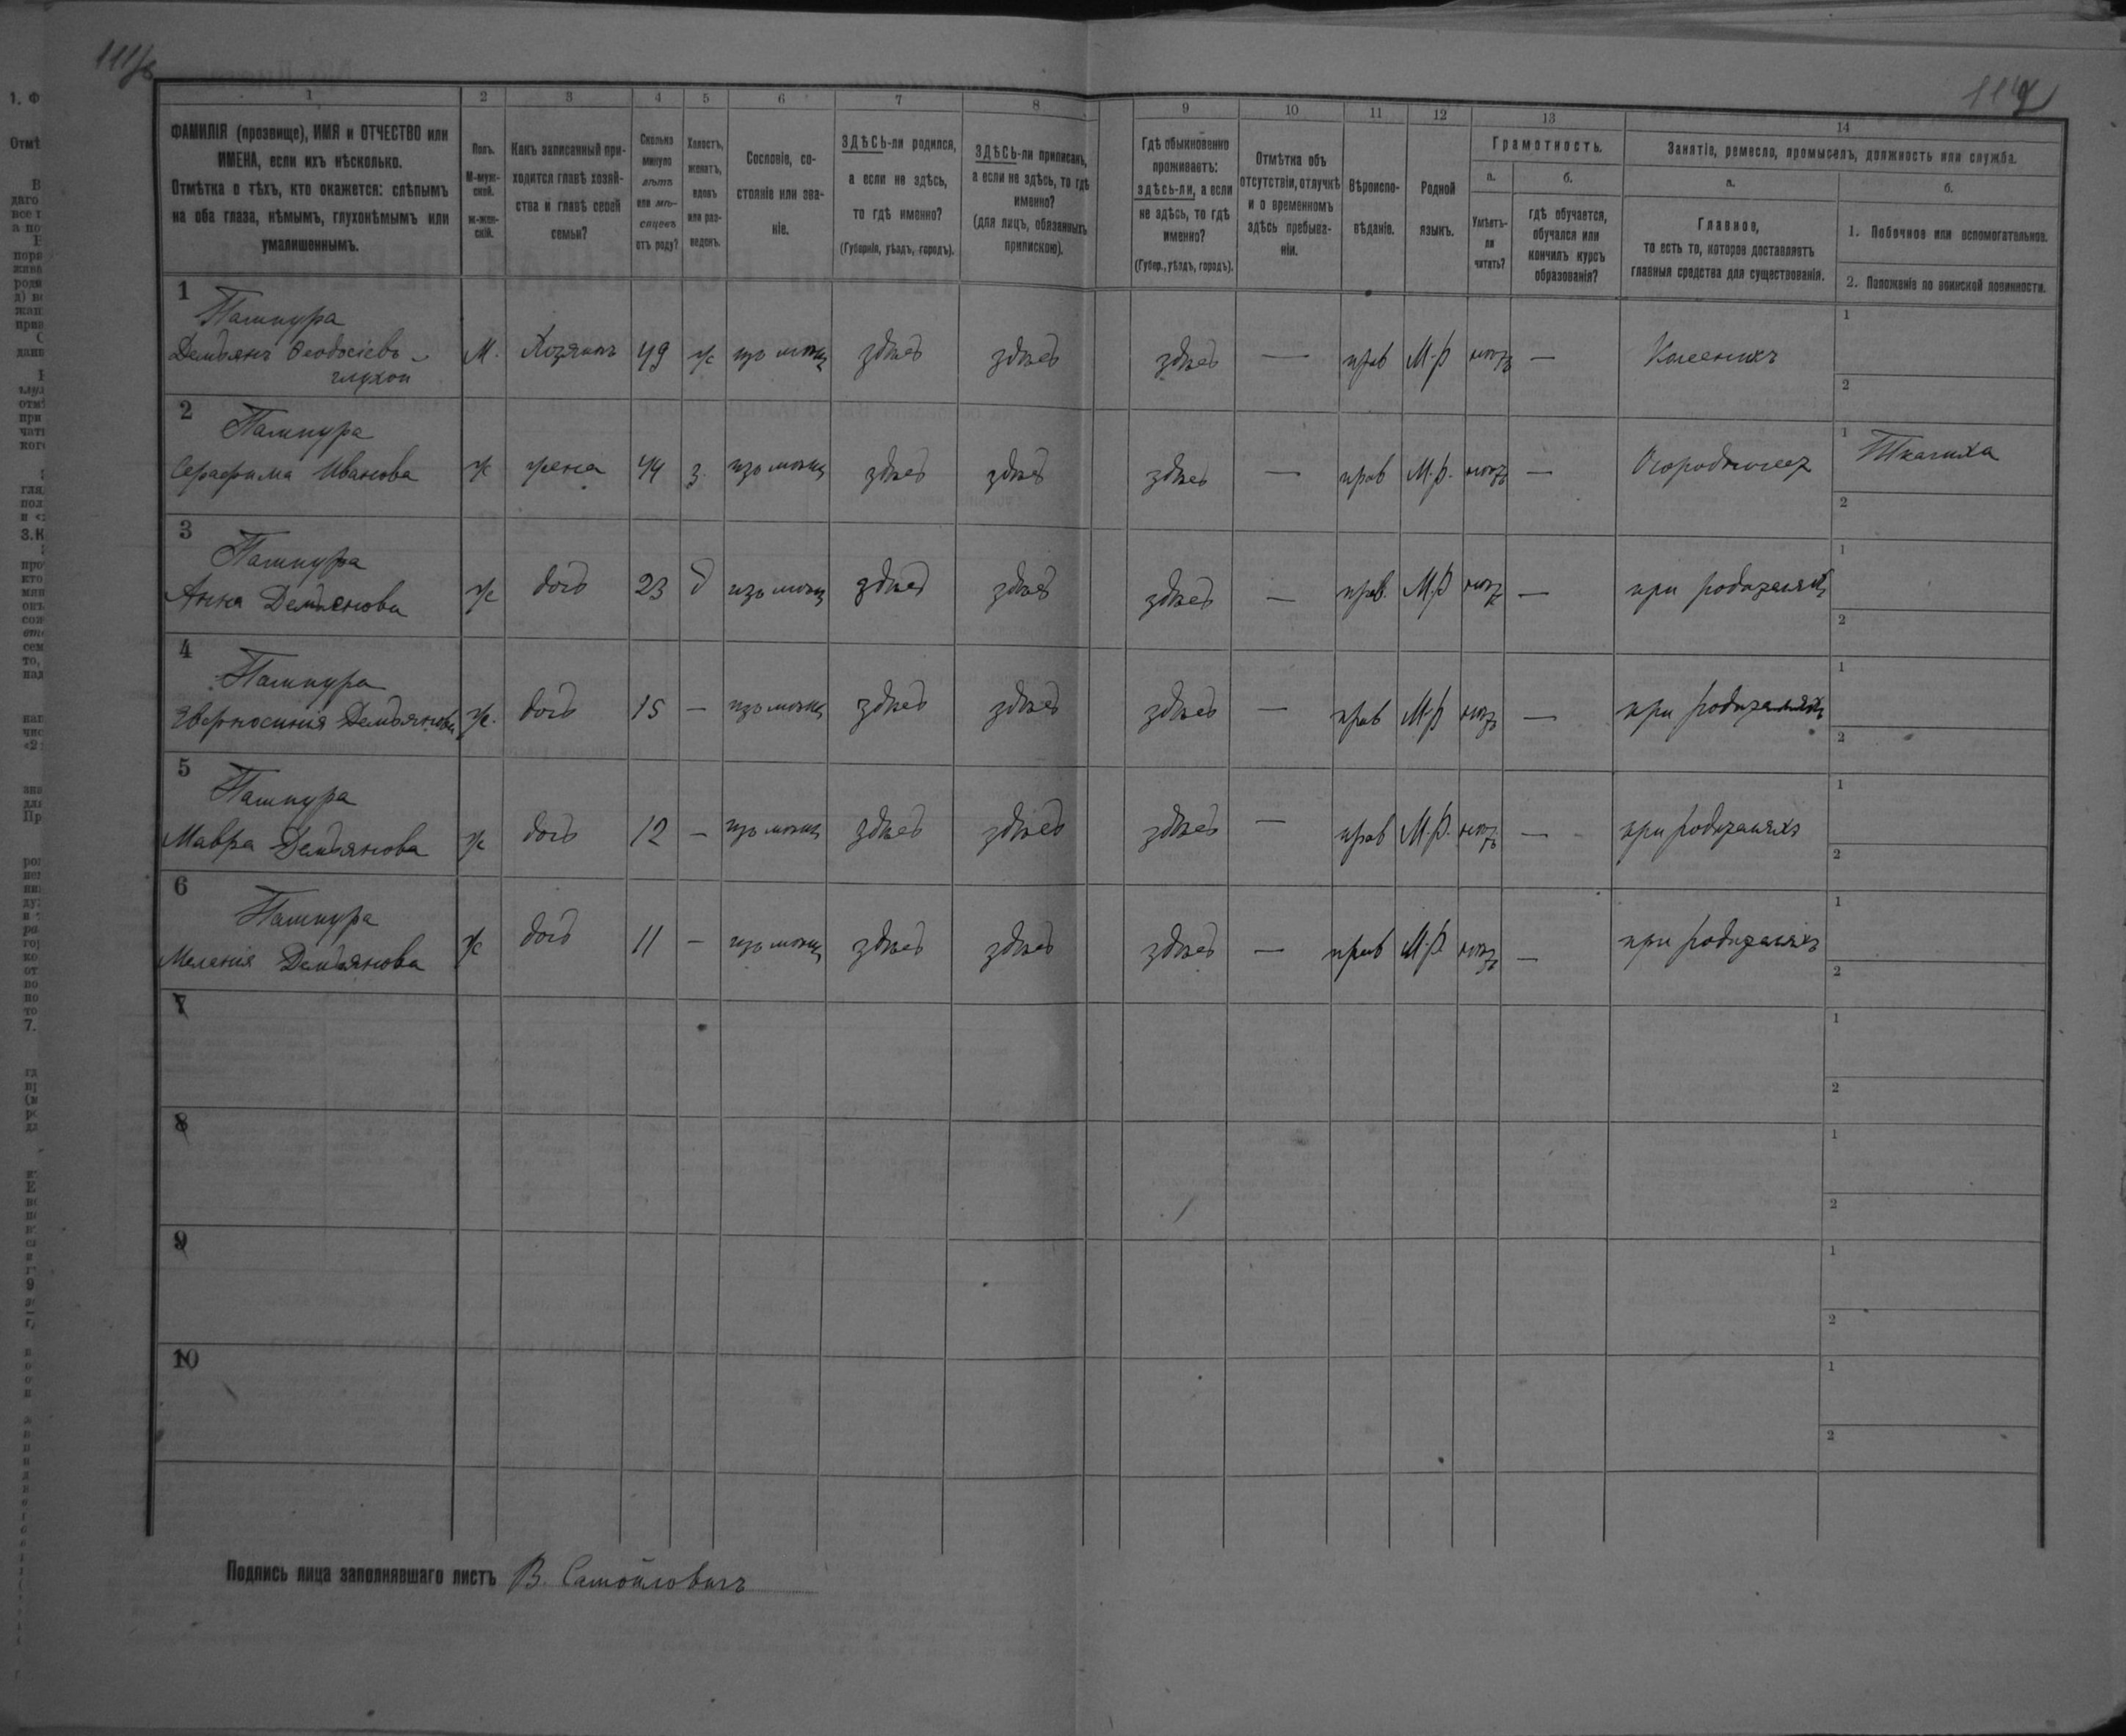 1
2
3
4
5
6
7
8
9
10
11
12
13
14
ФАМИЛІЯ (прозвище), ИМЯ и ОТЧЕСТВО или
ИМЕНА, если ихъ нѣсколько.
Отмѣтка о тѣхъ, кто окажется: слѣпымъ
на оба глаза, нѣмымъ, глухонѣмымъ или
умалишеннымъ.
Полъ.
М-муж-
ской.
ж-жен-
скій.
Какъ записанный при-
ходится главѣ хозяй-
ства и главѣ своей
семьи?
Сколько
минуло
лѣтъ
или мѣ-
сяцевъ
отъ роду?
Холостъ,
женатъ,
вдовъ
или раз-
веденъ.
Сословіе, со-
стояніе или зва-
ніе.
ЗДѢСЬ-ли родился,
а если не здѣсь,
то гдѣ именно?
(Губернія, уѣздъ, городъ).
ЗДѢСЬ-ли приписанъ,
а если не здѣсь, то гдѣ
именно?
(для лицъ, обязанныхъ
припискою).
Гдѣ обыкновенно
проживаетъ:
здѣсь-ли, а если
не здѣсь, то гдѣ
именно?
(Губер., уѣздъ, городъ).
Отмѣтка объ
отсутствіи, отлучкѣ
и о временномъ
здѣсь пребыва-
ніи.
Вѣроиспо-
вѣданіе.
Родной
языкъ.
Грамотность.
а.
Умѣетъ-
ли
читать?
б.
гдѣ обучается,
обучался или
кончилъ курсъ
образованія?
Занятіе, ремесло, промыселъ, должность или служба.
а.
Главное,
то есть то, которое доставляетъ
главныя средства для существованія.
б.
1. Побочное или вспомогательное.
2. Положеніе по воинской повинности.
1 Пашпура
Демьянъ Ѳеодосіевъ -
глухой
М. Хозяинъ 49 ж здѣсь здѣсь здѣсь — прав М.р нѣтъ — 1
2
2 Пашпура
Серафима Иванова ж жена 44 з. здѣсь здѣсь здѣсь — прав М.р. нѣтъ — 1 Ткачиха
2
3 Пашпура
Анна Демьянова ж дочь 23 д здѣсь здѣсь здѣсь — прав. М.р нѣтъ — при родителяхъ 1
2
4 Пашпура
Евфросинія Демьянова ж. дочь 15 — здѣсь здѣсь здѣсь — прав М.р нѣтъ — при родителяхъ 1
2
5 Пашпура
Мавра Демьянова ж дочь 12 — здѣсь здѣсь здѣсь — прав М.р. нѣтъ — при родителяхъ 1
2
6 Пашпура
Меланія Демьянова ж дочь 11 — здѣсь здѣсь здѣсь — прав М.р нѣтъ — при родителяхъ 1
2
7 1
2
8 1
2
9 1
2
10 1
2
Подпись лица заполнявшаго листъ В. Самойловичъ